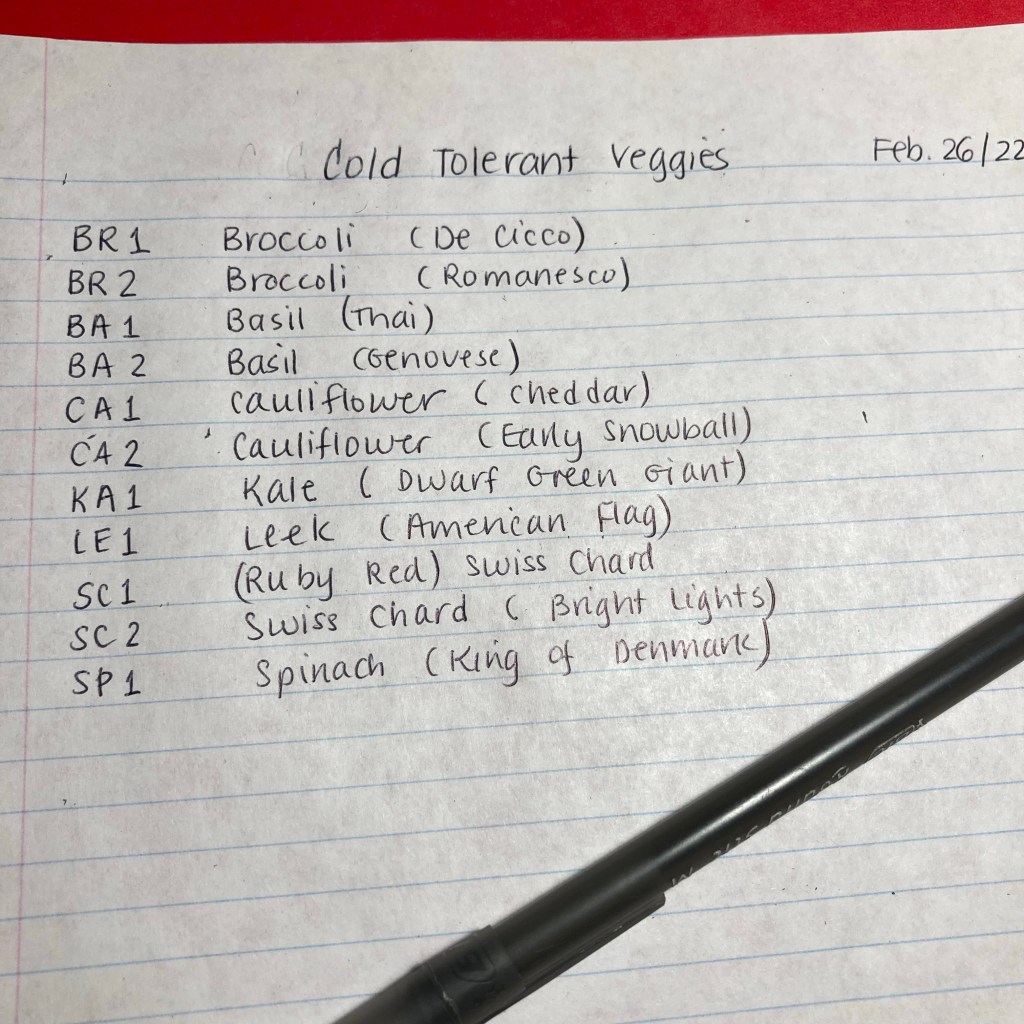 Cold Tolerant Veggies Feb. 26/22
BR1 Broccoli (De Cicco)
BR2 Broccoli (Romanesco)
BA1 Basil (Thai)
BA2 Basil (Genovese)
CA1 Cauliflower (Cheddar)
CA2 Cauliflower (Early Snowball)
KA1 Kale (Dwarf Green Giant)
LE1 Leek (American Flag)
SC1 (Ruby Red) Swiss Chard
SC2 Swiss Chard (Bright Lights)
SP1 Spinach (King of Denmark)